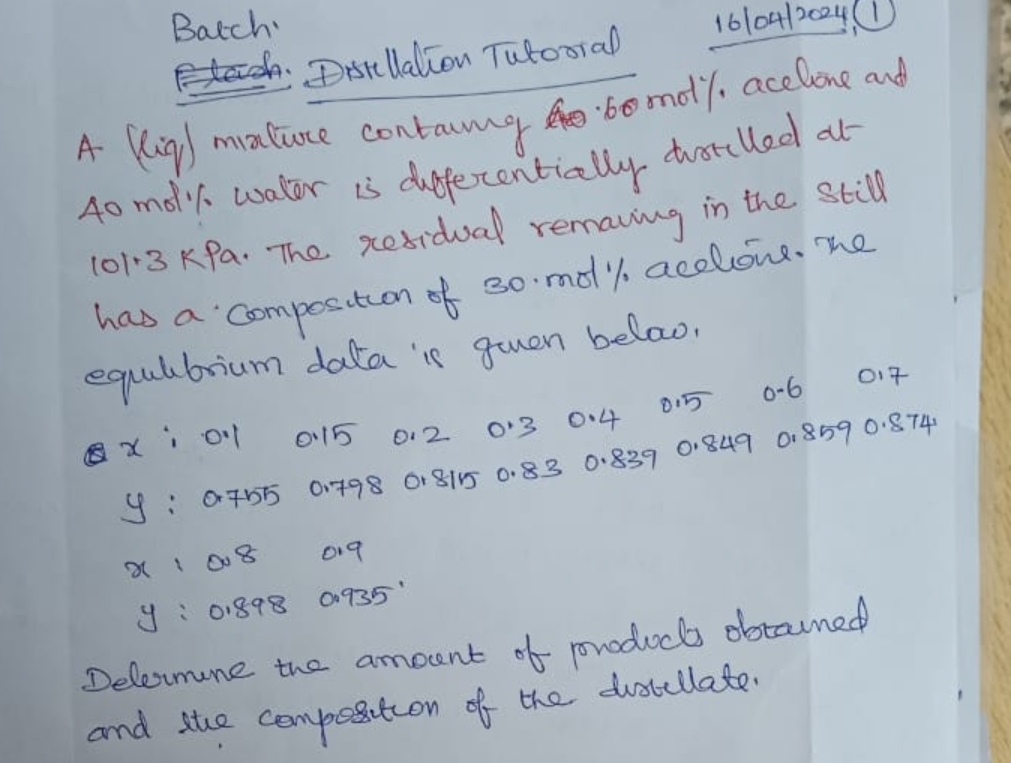 Batch.
16/04/2024, 1
Distillation Tutorial
A (liq) mixture containing 60 mol% acetone and
40 mol% water is differentially distilled at
101.3 KPa. The residual remaining in the still
has a composition of 30 mol% acetone. The
equilibrium data is given below.
x : 0.1 0.15 0.2 0.3 0.4 0.5 0.6 0.7
y : 0.755 0.798 0.815 0.83 0.839 0.849 0.859 0.874
x : 0.8 0.9
y : 0.898 0.935
Determine the amount of products obtained
and the composition of the distillate.